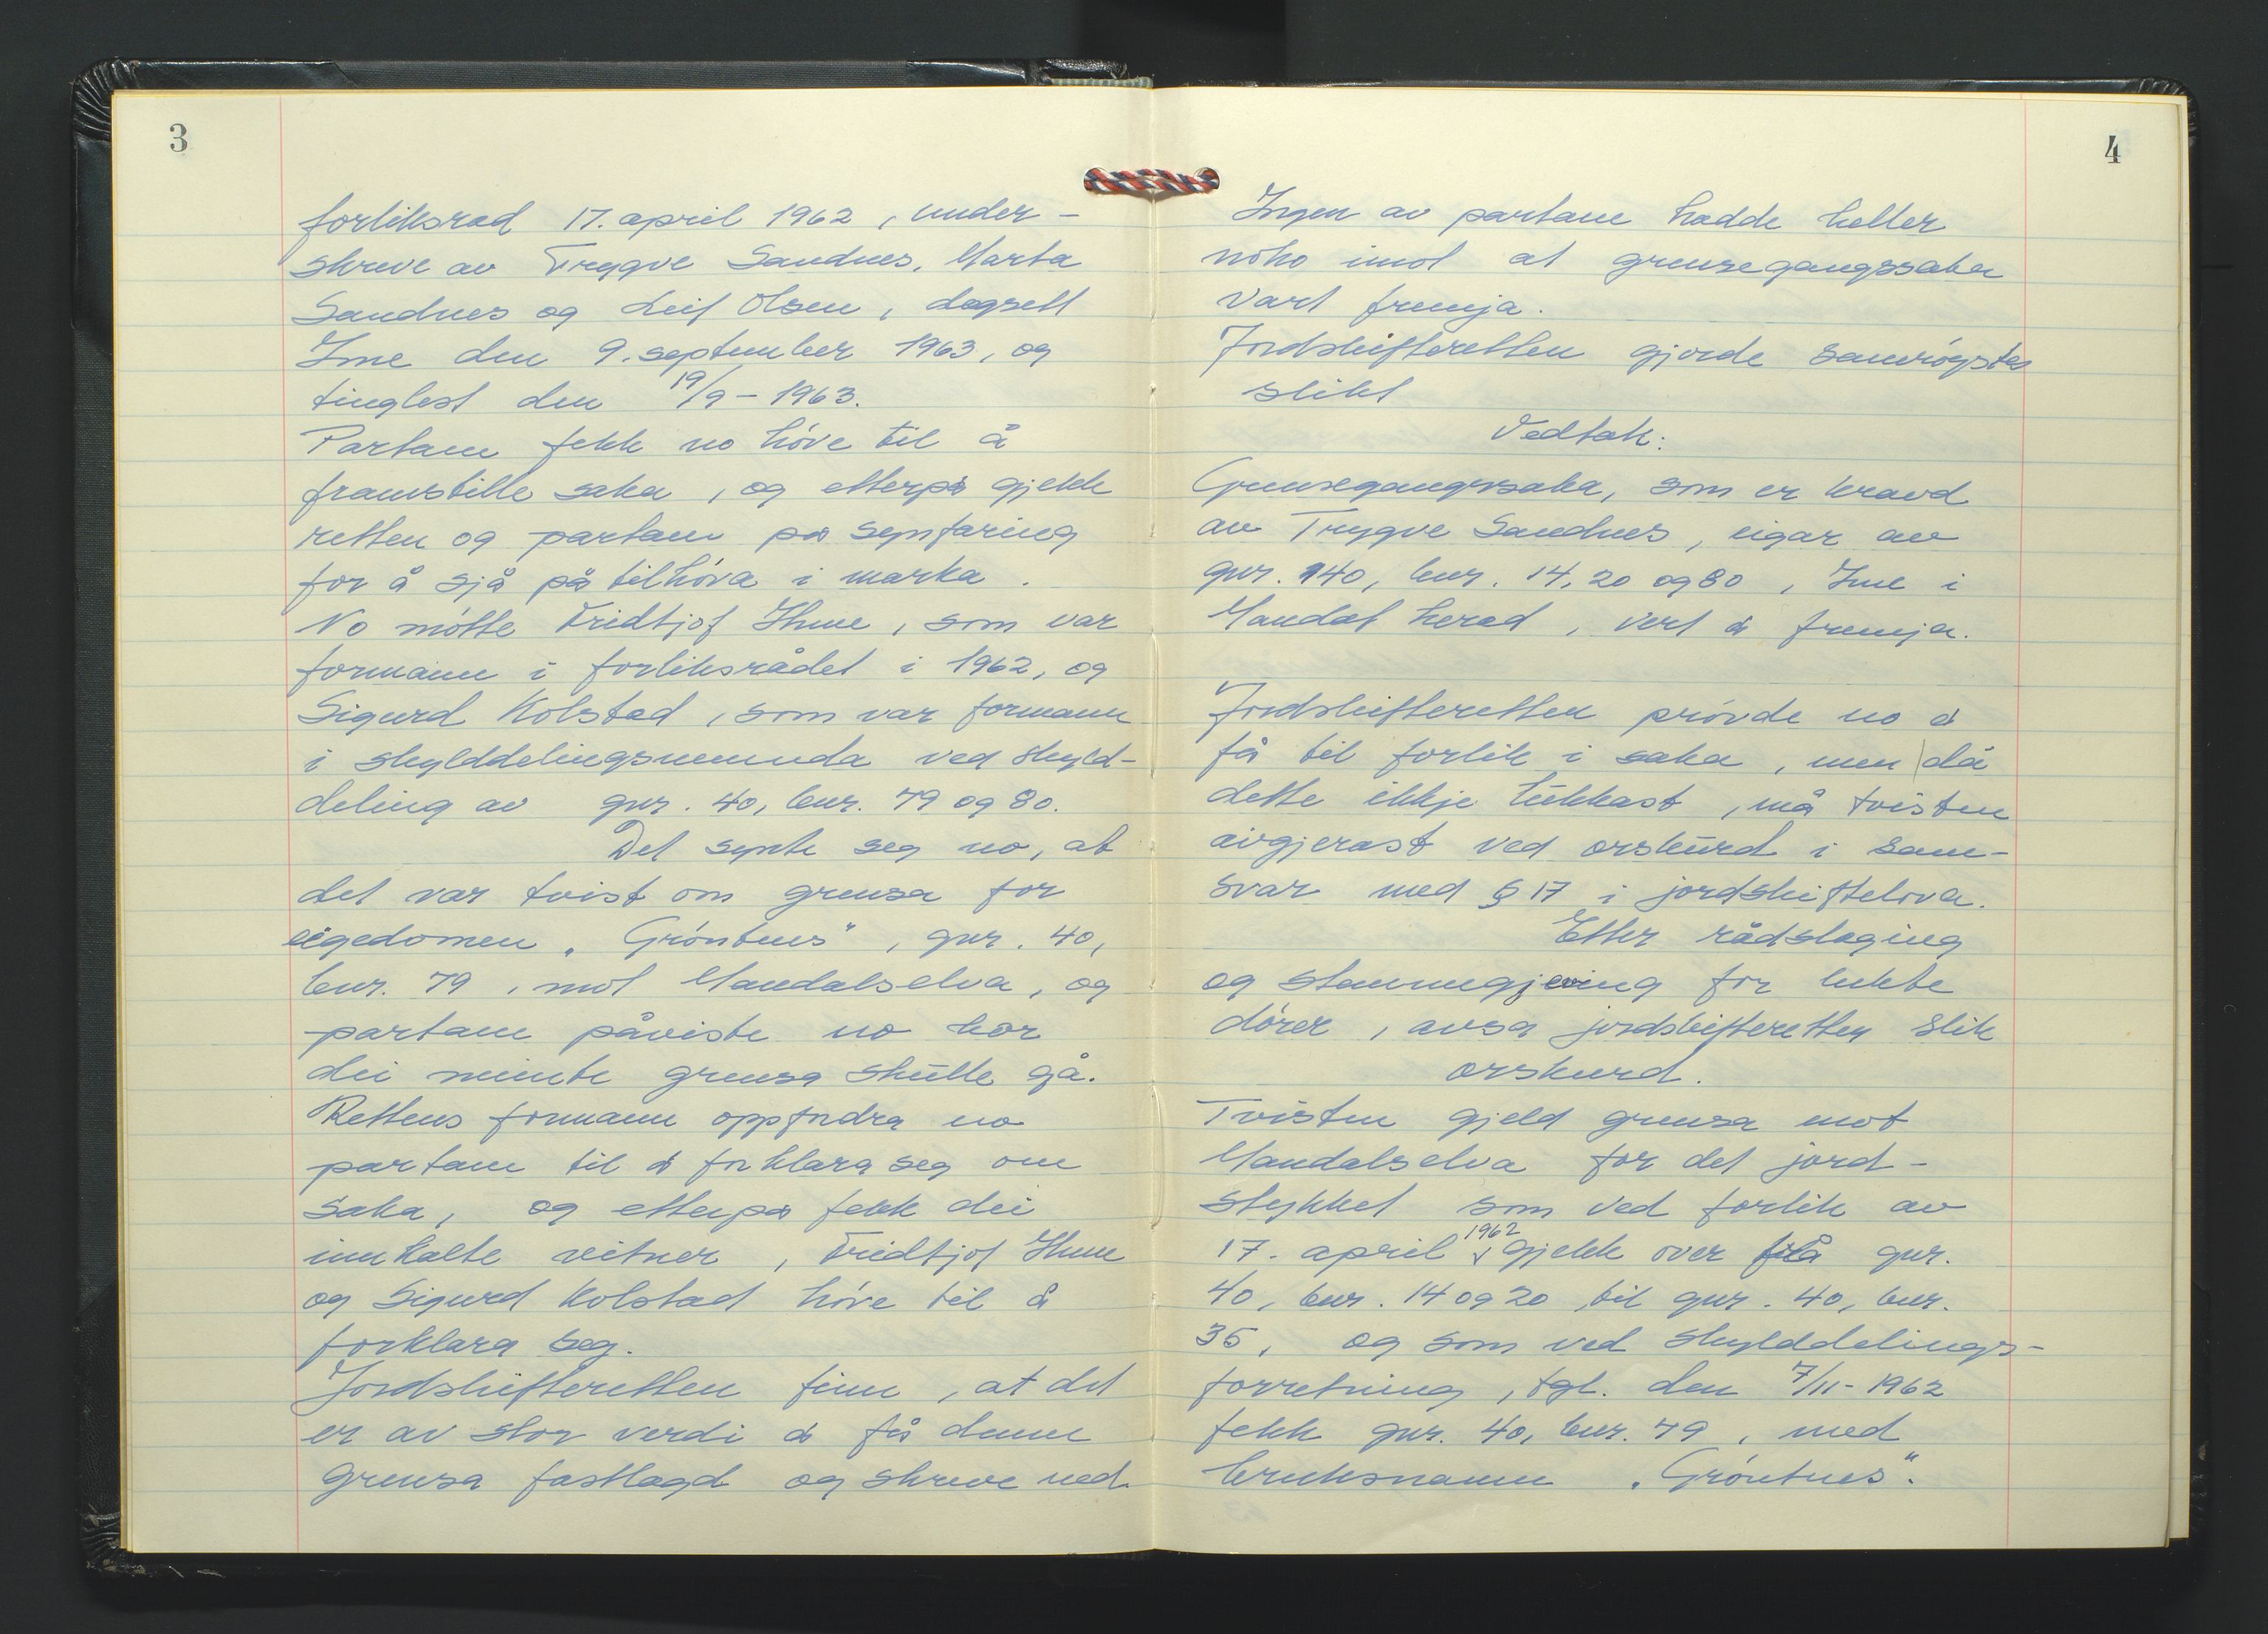 3
forliksråd 17. april 1962, under-
skreve av Trygve Sandnes, Marta
Sandnes og Leif Olsen, dagsett
Ime den 9. september 1963, og
tinglest den 19/9 - 1963.
Partane fekk no höve til å
framstille saka, og etterpå gjekk
retten og partane på synfaring
for å sjå på tilhöva i marka.
No mötte Fridtjof Ihme, som var
formann i forliksrådet i 1962, og
Sigurd Kolstad, som var formann
i skylddelingsnemnda ved skyld-
deling av gnr. 40, bnr. 79 og 80.
Det synte seg no, at
det var tvist om grensa for
eigedomen "Gröntnes", gnr. 40,
bnr. 79, mot Mandalselva, og
partane påviste no kor
dei meinte grensa skulle gå.
Rettens formann oppfordra no
partane til å forklara seg om
saka, og etterpå fekk dei
innkalte vitner, Fridtjof Ihme
og Sigurd Kolstad höve til å
forklara seg.
Jordskifteretten finn, at det
er av stor verdi å få denne
grensa fastlagd og skreve ned.
4
Ingen av partane hadde heller
noko imot at grensegangssaka
vart fremja.
Jordskifteretten gjorde samröystes
slikt
Vedtak:
Grensegangssaka, som er kravd
av Trygve Sandnes, eigar av
gnr. 40, bnr. 14, 20 og 80, Ime i
Mandal herad, vert å fremja.
Jordskifteretten prövde no å
få til forlik i saka, men då
dette ikkje lukkast, må tvisten
avgjerast ved orskurd i sam-
svar med § 17 i jordskiftelova.
Etter rådslaging
og stemmegjeving for lukte
dörer, avsa jordskifteretten slik
orskurd.
Tvisten gjeld grensa mot
Mandalselva for det jord-
stykket som ved forlik av
17. april 1962 gjekk over frå gnr.
40, bnr. 14 og 20, til gnr. 40, bnr.
35, og som ved skylddelings-
forretning, tgl. den 7/11 - 1962
fekk gnr. 40, bnr. 79, med
bruksnamn "Gröntnes".